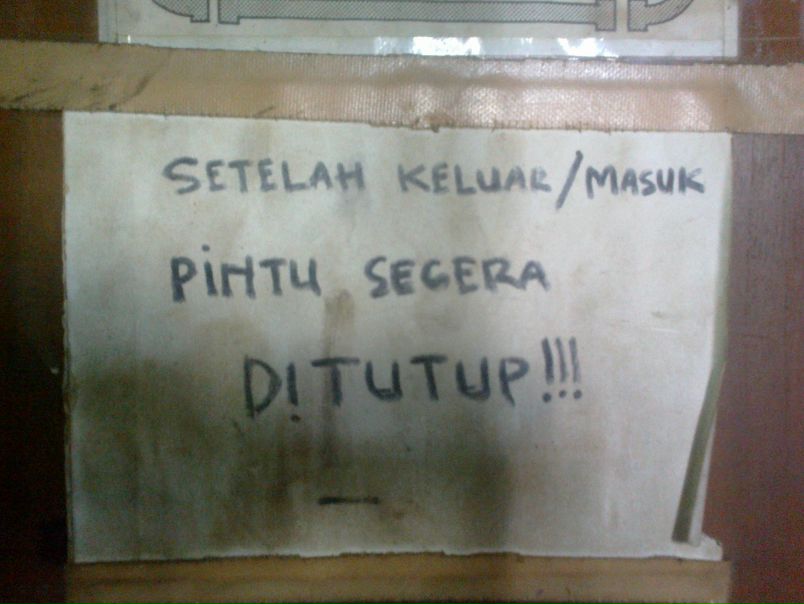 SETELAH KELUAR/MASUK
PiNTU SEGERA
DITUTUP!!!